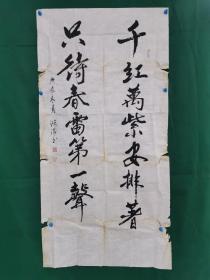 千红萬紫安排著
只待春雷第一聲